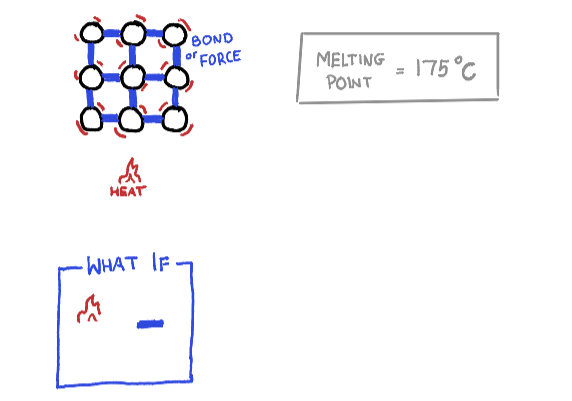 BOND
or FORCE
MELTING
POINT = 175°C
HEAT
WHAT IF